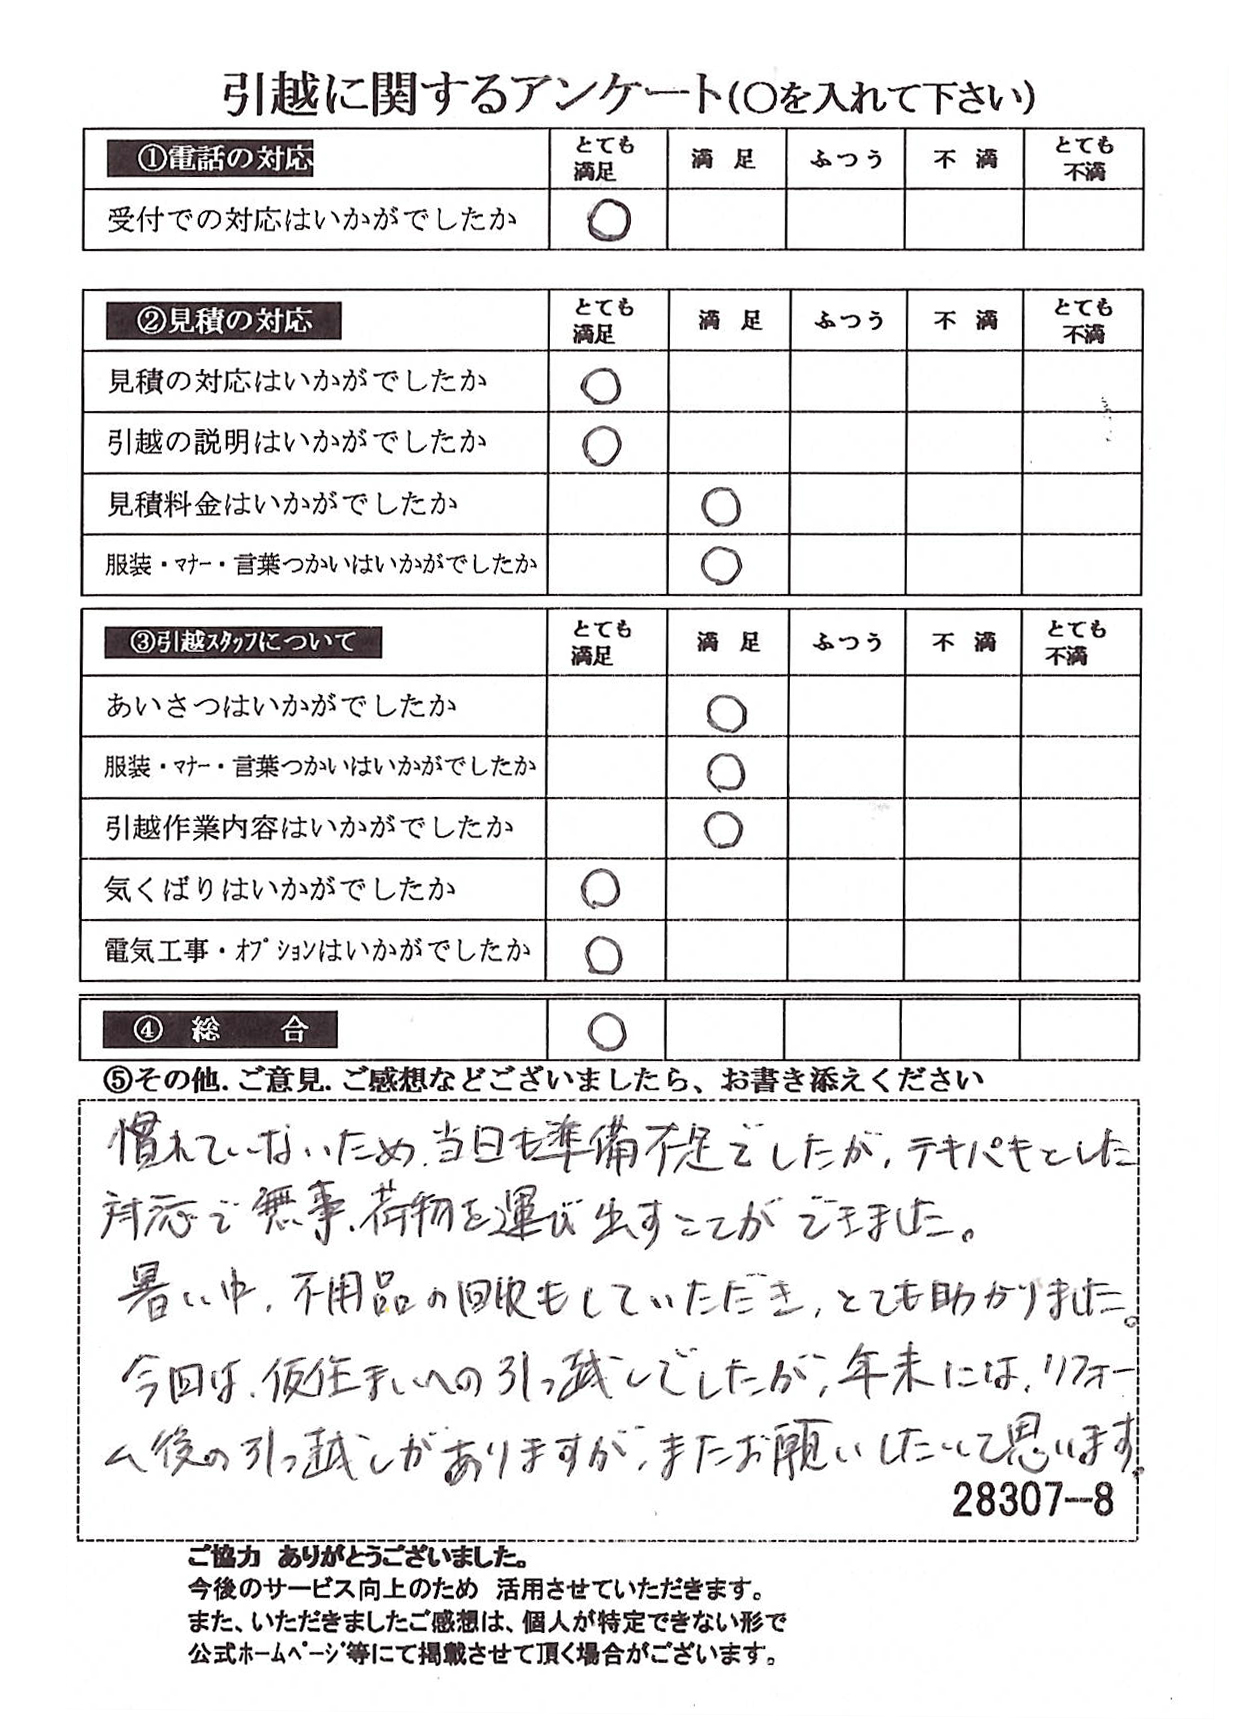 引越に関するアンケート(〇を入れて下さい)
①電話の対応 とても満足 満足 ふつう 不満 とても不満
受付での対応はいかがでしたか ○
②見積の対応 とても満足 満足 ふつう 不満 とても不満
見積の対応はいかがでしたか ○
引越の説明はいかがでしたか ○
見積料金はいかがでしたか ○
服装・ﾏﾅｰ・言葉つかいはいかがでしたか ○
③引越ｽﾀｯﾌについて とても満足 満足 ふつう 不満 とても不満
あいさつはいかがでしたか ○
服装・ﾏﾅｰ・言葉つかいはいかがでしたか ○
引越作業内容はいかがでしたか ○
気くばりはいかがでしたか ○
電気工事・ｵﾌﾟｼｮﾝはいかがでしたか ○
④ 総 合 ○
⑤その他.ご意見.ご感想などございましたら、お書き添えください
慣れていないため、当日も準備不足でしたが、テキパキとした
対応で無事、荷物を運び出すことができました。
暑い中、不用品の回収もしていただき、とても助かりました。
今回は、仮住まいへの引っ越しでしたが、年末には、リフォー
ム後の引っ越しがありますが、またお願いしたいと思います。
28307--8
ご協力 ありがとうございました。
今後のサービス向上のため 活用させていただきます。
また、いただきましたご感想は、個人が特定できない形で
公式ﾎｰﾑﾍﾟｰｼﾞ等にて掲載させて頂く場合がございます。